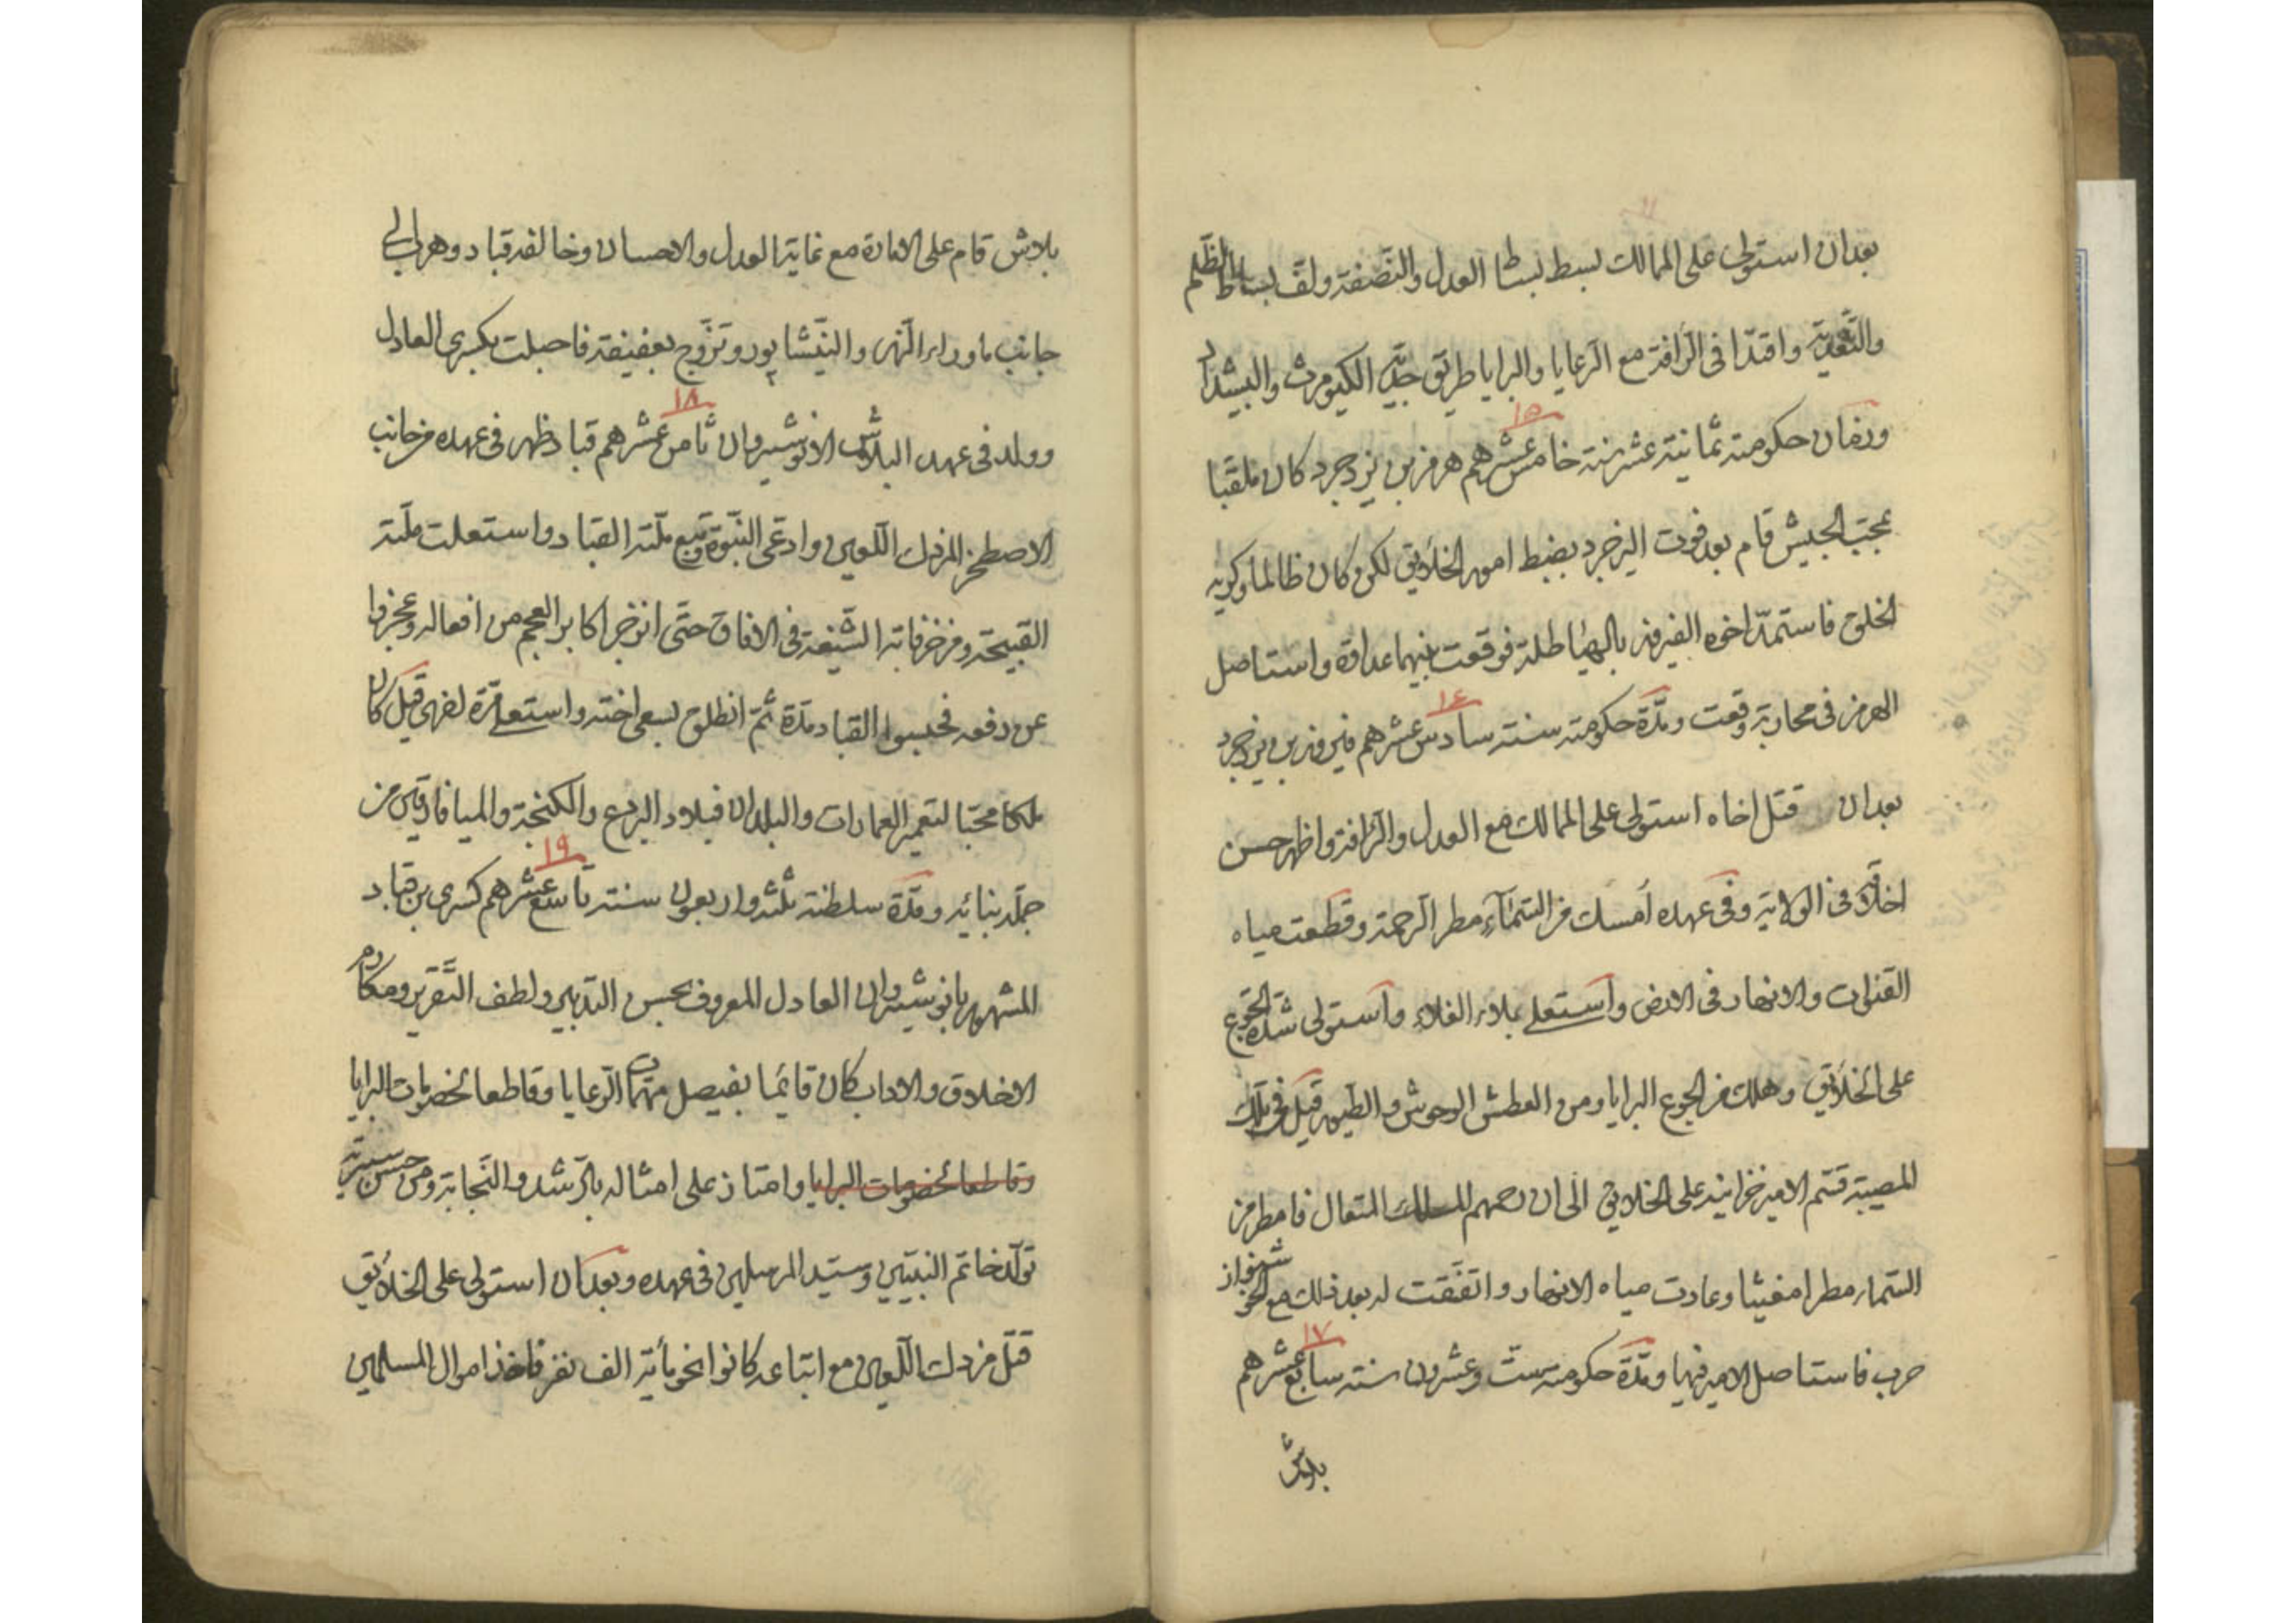 بعد ان استولى على الممالك بسط بساط العدل والنصفة ولف بساط الظلم
والتعدية واقتدا فى الرافة مع الرعايا والبرايا طريق جديه الكيومرث والبيشداد
وزمان حكومته ثمانية عشر سنة خامس عشرهم هرمز بن يزدجرد كان ملقبا
١٥
بمجتب الجيش قام بعد فوت اليزجرد بضبط امور الخلائق لكن كان ظالما وكريه
الخلق فاستمد اخوه الفيروز بالهياطلة فوقعت بينهما عداوة واستاصل
الهرمز فى محاربة وقعت ومدة حكومته سنته سادس عشرهم فيروز بن يزدجرد
١٦
بعد ان قتل اخاه استولى على الممالك مع العدل والرافة واظهر حسن
اخلاقه فى الولاية وفى عهده أمسك من السماء مطر الرحمة وقطعت مياه
القنوات والانهار فى الارض واستعلى بلاء الغلاء واستولى شدة الجوع
على الخلائق وهلك من الجوع البرايا ومن العطش الوحوش والطيور قيل فى تلك
المصيبة قسم الامير خزاينه على الخلايق الى ان رحمهم الملك المتعال فامطر من
السماء مطرا مغيثا وعادت مياه الانهار واتفقت له بعد ذلك مع الخوشنواز
حرب فاستاصل الامير فيها ومدة حكومته ست وعشرون سنته سابع عشرهم
١٧
بلاش
بلاش قام على الامارة مع غاية العدل والاحسان وخالفه قباد وهرب الى
جانب ماوراء النهر والنيشابور وتزوج بعفيفة فاحبلت بكسرى العادل
وولد فى عهد البلاش الانوشيروان ثامن عشرهم قباد ظهر فى عهده من جانب
١٨
الاصطخر المزدك اللعين وادعى النبوة وتبع ملته القباد واستعلت ملته
القبيحة ومزخرفاته الشنيعة فى الافاق حتى انزجر اكابر العجم من افعاله وعجزوا
عن دفعه فحبسوا القباد مدة ثم انطلق بسعى اخته واستعلى مرة اخرى قيل كان
ملكا محبا لتعمير العمارات والبلدان فبلاد البردع والكنجة والميافارقين من
جملة بنائه ومدة سلطنته ثلثه واربعون سنته تاسع عشرهم كسرى بن قباد
١٩
المشهور بانوشيروان العادل المعروف بحسن التدبير ولطف التقرير ومكارم
الاخلاق والاداب كان قائما بفيصل مهمات الرعايا وقاطعا لخصومات البرايا
وقاطعا لخصومات البرايا وامتاز على امثاله بالرشد والنجابة ومن حسن سيرته
تولد خاتم النبيين وسيد المرسلين فى عهده وبعد ان استولى على الخلائق
قتل مزدك اللعين مع اتباعه كانوا نحو مأية الف نفر فاخذ اموال المسلمين